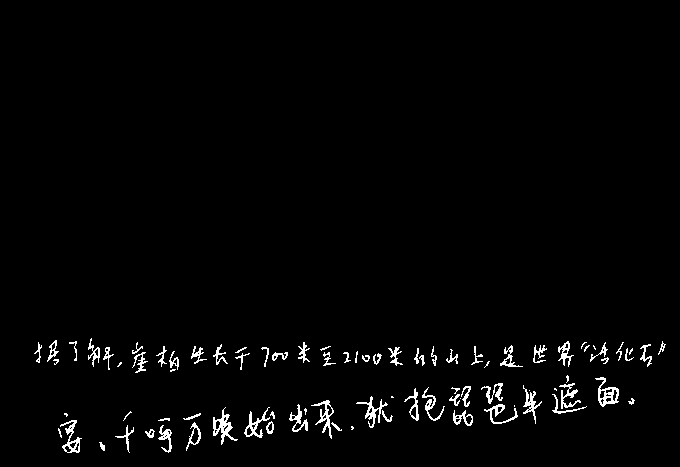 据了解,崖柏生长于700米至2100米的山上,是世界“活化石”
宴。千呼万唤始出来,犹抱琵琶半遮面。